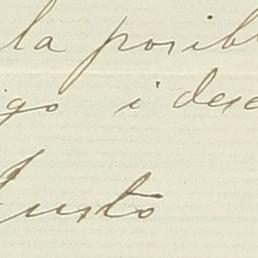 la posibl
igo i dese
Justo